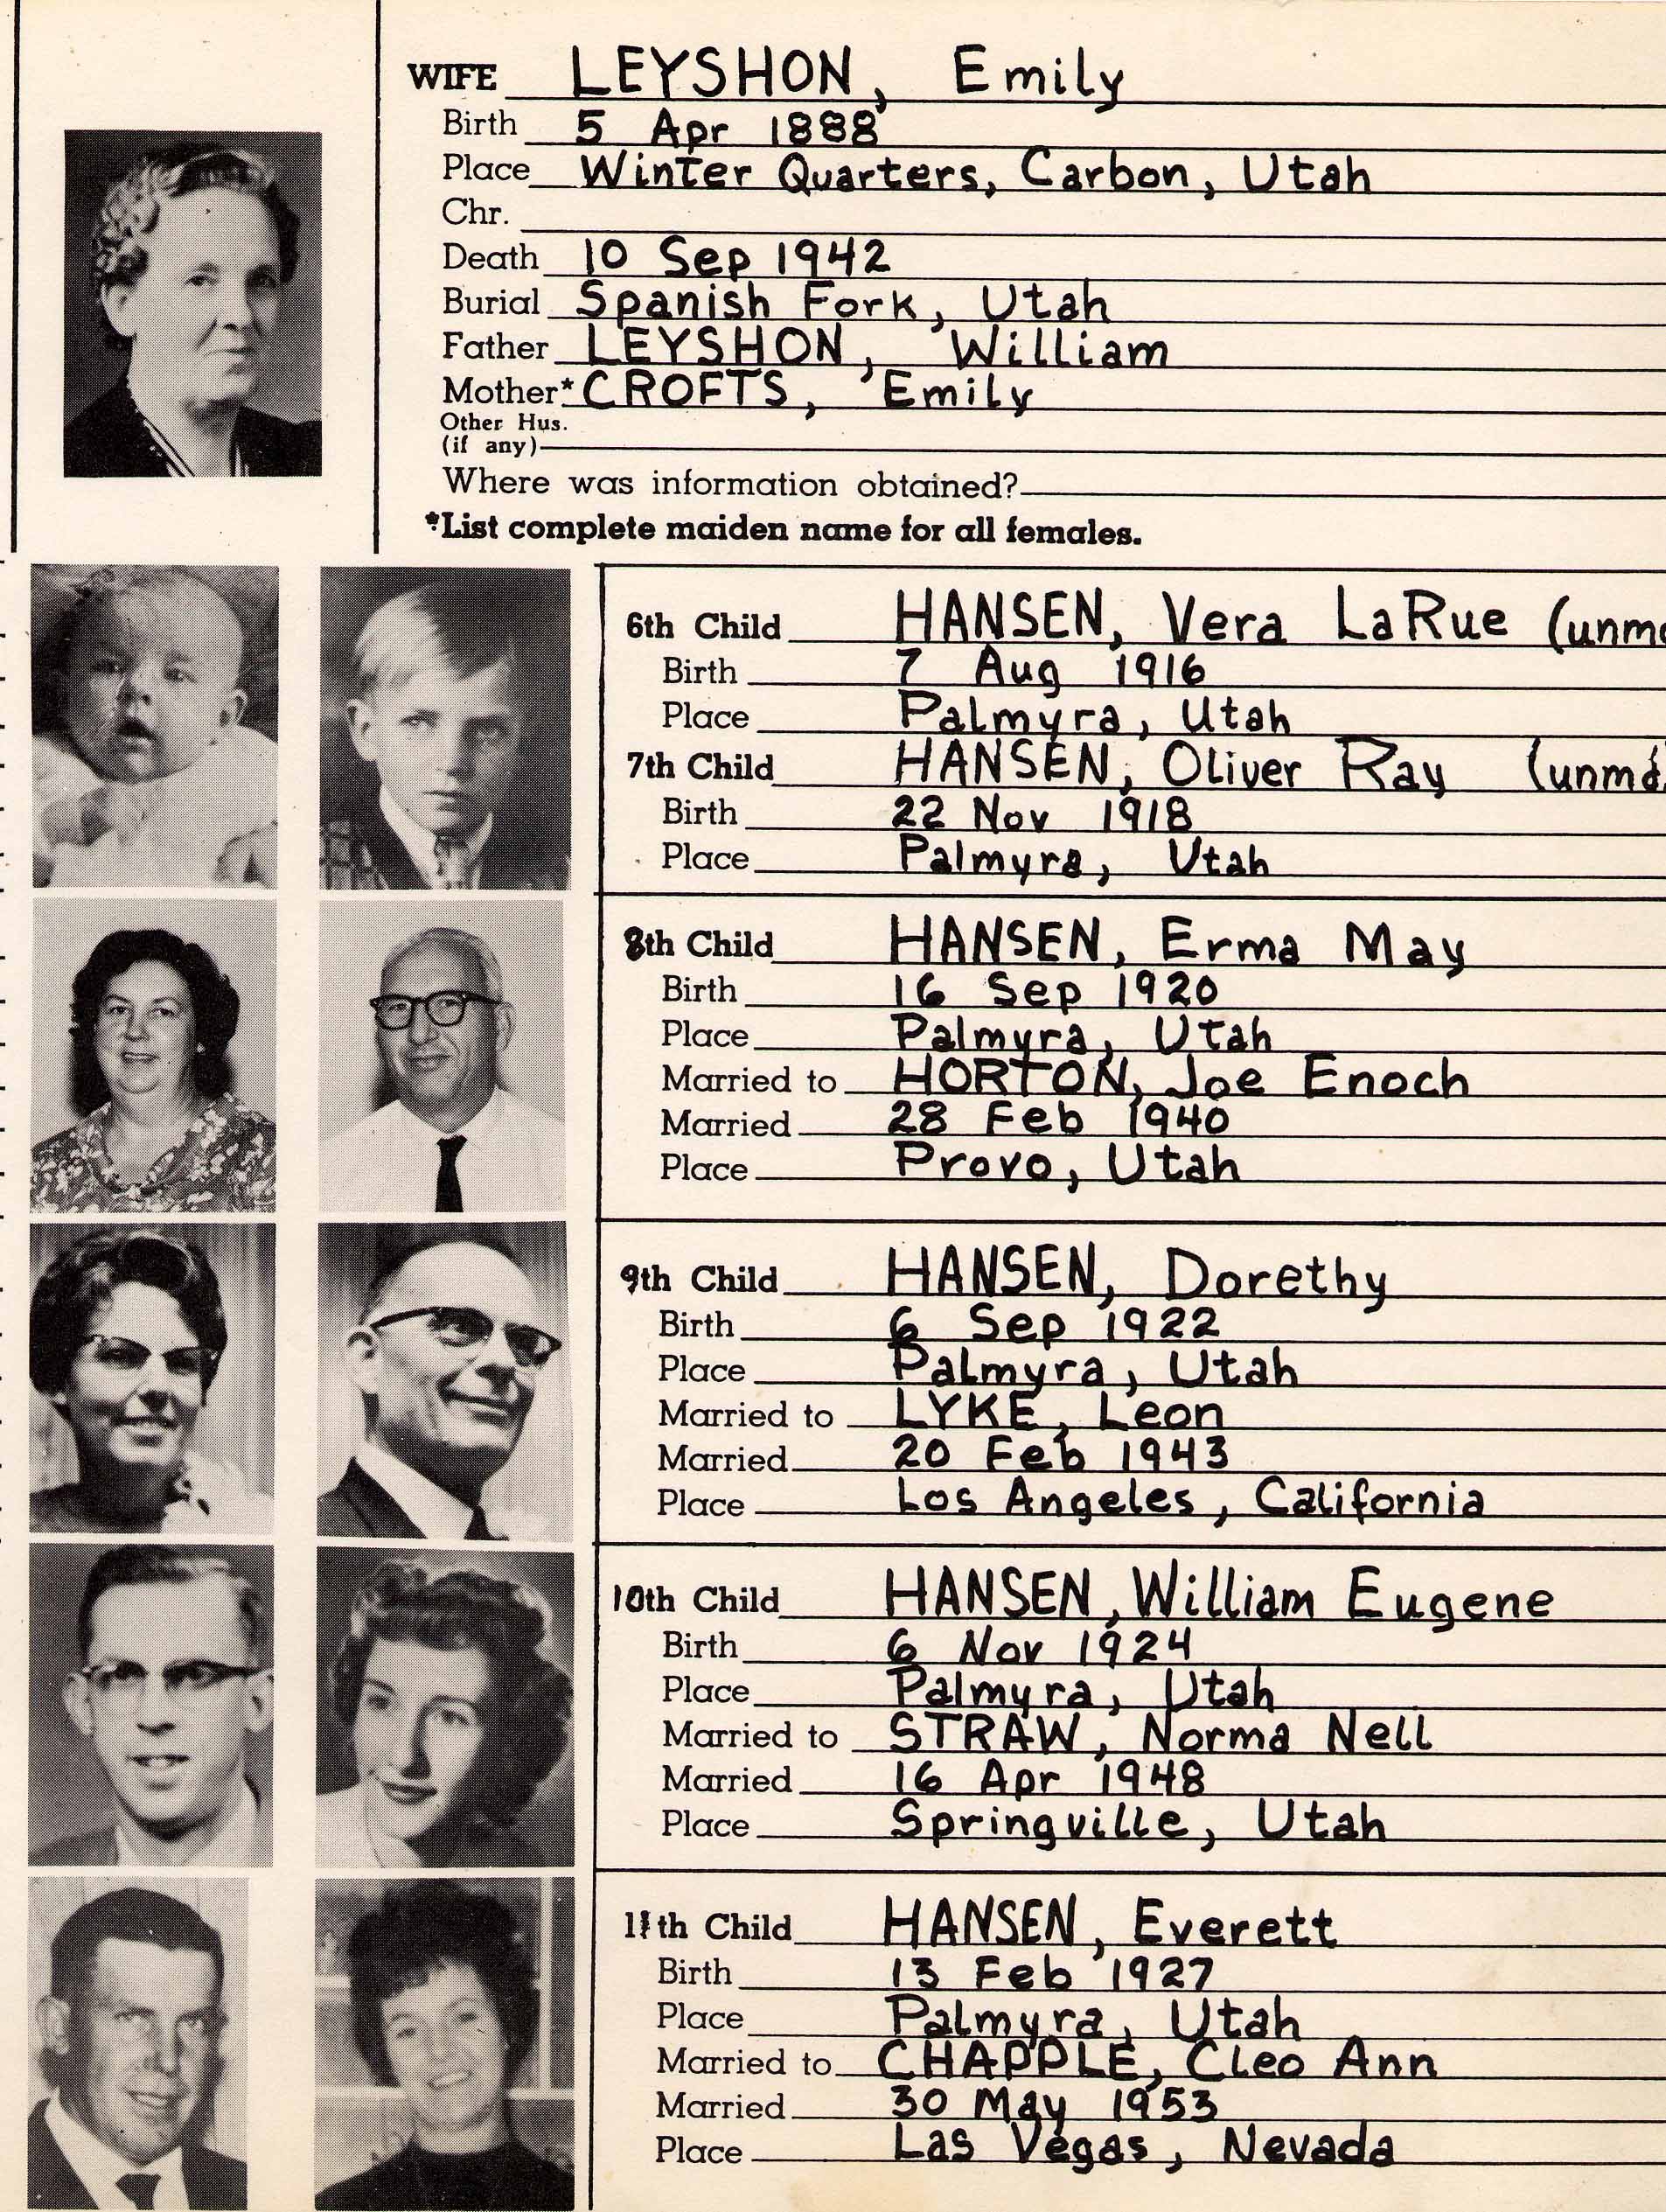 WIFE LEYSHON, Emily
Birth 5 Apr 1888
Place Winter Quarters, Carbon, Utah
Chr.
Death 10 Sep 1942
Burial Spanish Fork, Utah
Father LEYSHON, William
Mother* CROFTS, Emily
Other Hus.
(if any)
Where was information obtained?
*List complete maiden name for all females.
6th Child HANSEN, Vera LaRue (unm
Birth 7 Aug 1916
Place Palmyra, Utah
7th Child HANSEN, Oliver Ray (unmd.
Birth 22 Nov 1918
Place Palmyra, Utah
8th Child HANSEN, Erma May
Birth 16 Sep 1920
Place Palmyra, Utah
Married to HORTON, Joe Enoch
Married 28 Feb 1940
Place Provo, Utah
9th Child HANSEN, Dorethy
Birth 6 Sep 1922
Place Palmyra, Utah
Married to LYKE, Leon
Married 20 Feb 1943
Place Los Angeles, California
10th Child HANSEN, William Eugene
Birth 6 Nov 1924
Place Palmyra, Utah
Married to STRAW, Norma Nell
Married 16 Apr 1948
Place Springville, Utah
11th Child HANSEN, Everett
Birth 13 Feb 1927
Place Palmyra, Utah
Married to CHAPPLE, Cleo Ann
Married 30 May 1953
Place Las Vegas, Nevada